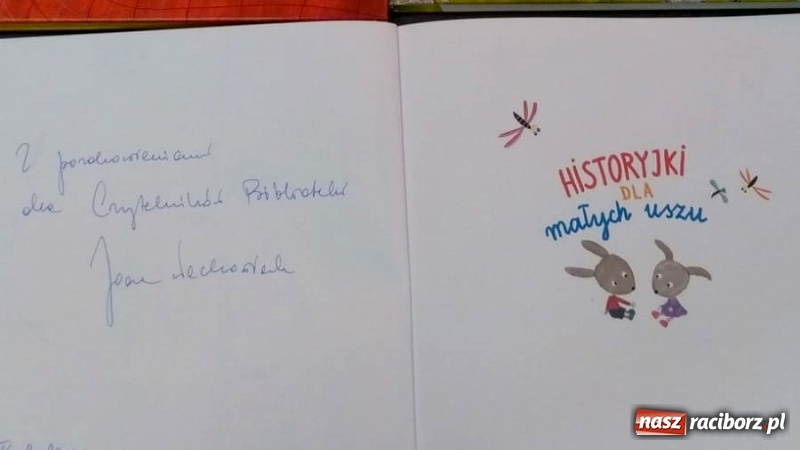 Z pozdrowieniami
dla Czytelników Biblioteki
Joanna Wachowiak
HISTORYJKI
DLA
małych uszu
nasz raciborz.pl